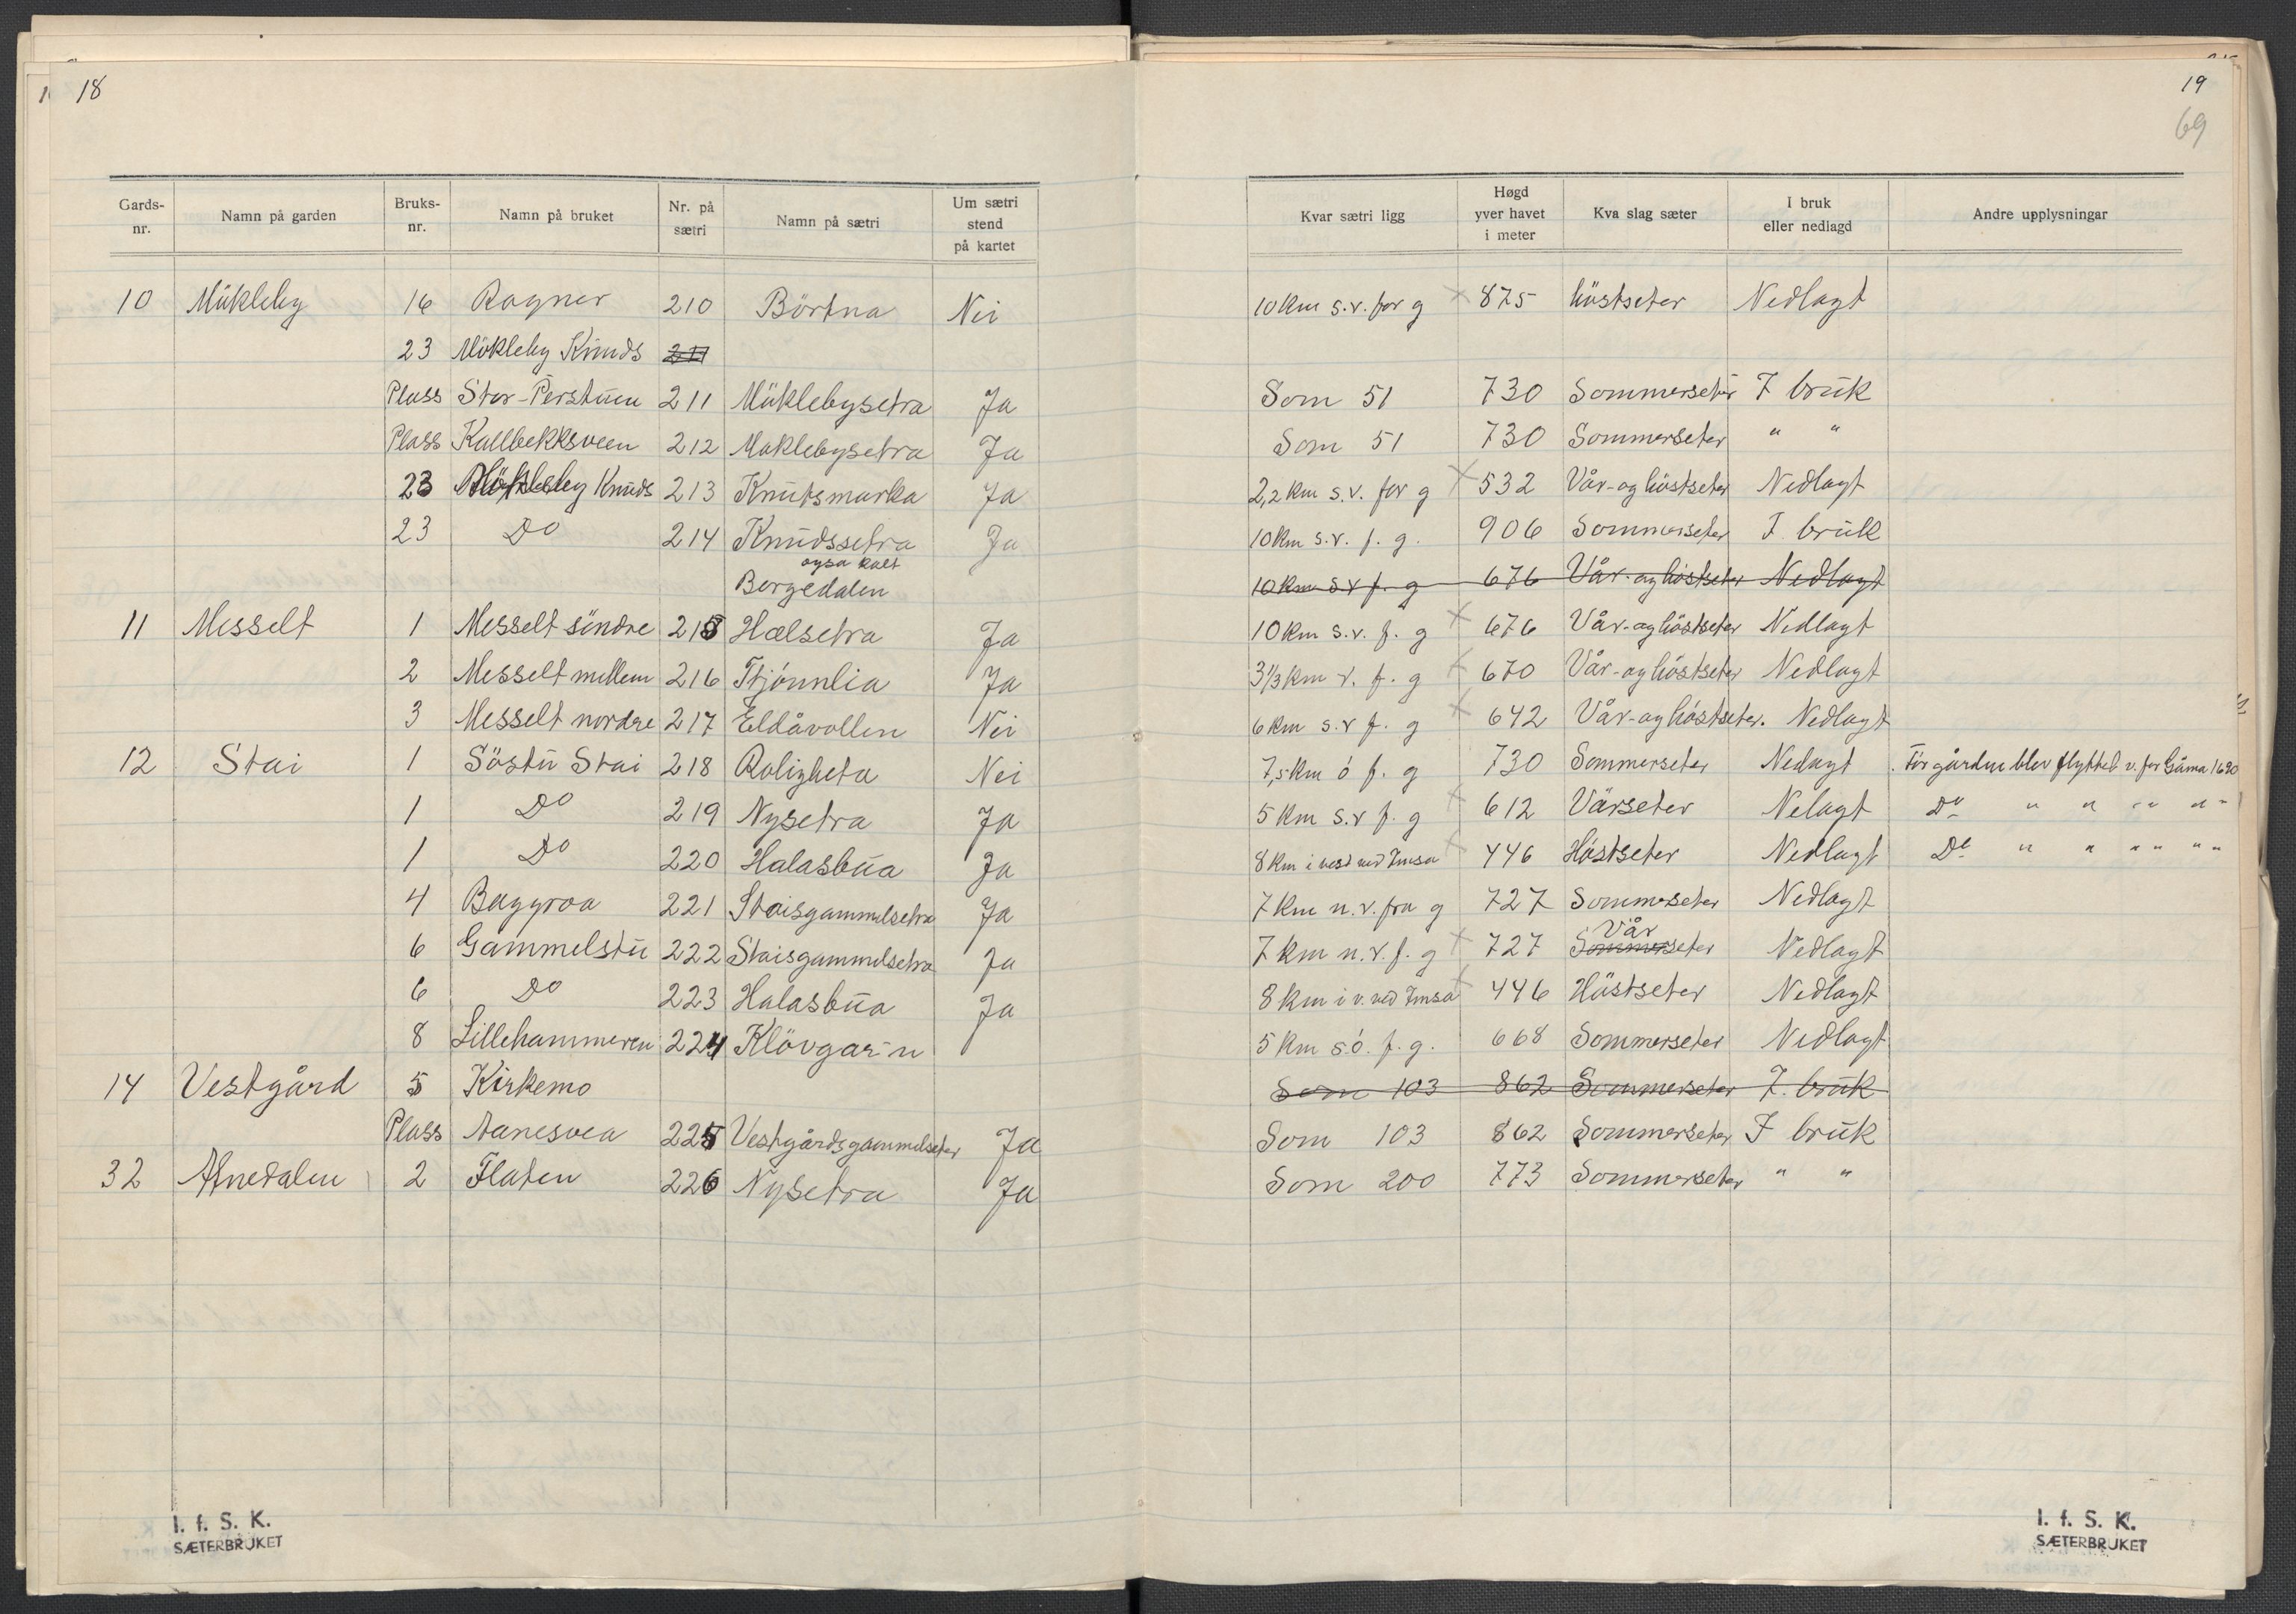 18
Gards-nr. Namn på garden Bruks-nr. Namn på bruket Nr. på sætri Namn på sætri Um sætri stend på kartet
10 Mükleby 16 Ragner 210 Börtna Nei
23 Mökleby Knuds 211
Plass Stor-Perstuen 211 Müklebysetra Ja
Plass Kallbekksveen 212 Moklebysetra Ja
23 Mökleby Knuds 213 Knutsmarka Ja
23 Do 214 Knudssetra Ja
også kalt
Borgedalen
11 Messelt 1 Messelt söndre 215 Hælsetra Ja
2 Messelt mellem 216 Tjönnlia Ja
3 Messelt nordre 217 Eldåvollen Nei
12 Stai 1 Söstu Stai 218 Roligheta Nei
1 Do 219 Nysetra Ja
1 Do 220 Halasbua Ja
4 Baggroa 221 Staisgammelsetra Ja
6 Gammelstu 222 Staisgammelsetra Ja
6 Do 223 Halasbua Ja
8 Lillehammeren 224 Klövgar'n
14 Vestgård 5 Kirkemo
Plass Aanesvea 225 Vestgårdsgammelseter Ja
32 Atnedalen 2 Flaten 226 Nysetra Ja
I. f. S. K.
SÆTERBRUKET
19
69
Kvar sætri ligg Høgd yver havet i meter Kva slag sæter I bruk eller nedlagd Andre upplysningar
10 km s.v. for g x 875 höstseter Nedlagt
Som 51 730 Sommerseter I bruk
Som 51 730 Sommerseter " "
2,2 km s.v. for g x 532 Vår- og höstseter Nedlagt
10 km s.v. f. g. 906 Sommerseter I bruk
10 km s v f. g 676 Vår- og höstseter Nedlagt
10 km s.v. f. g x 676 Vår- og höstseter Nedlagt
3 1/3 km v. f. g x 670 Vår- og höstseter Nedlagt
6 km s.v f. g x 642 Vår- og höstseter. Nedlagt
7,5 km ö f. g 730 Sommerseter Nedlagt Før gården blev flyttet v. for Glåma 1690
5 km s.v f. g x 612 Vårseter Nelagt Do " " " " "
8 km i vest ved Imsa x 446 Höstseter Nedlagt Do " " " " " "
7 km n.v. fra g 727 Sommerseter Nedlagt
Vår
7 km n.v. f. g x 727 Sommerseter Nedlagt
8 km i v. ved Imsa x 446 Höstseter Nedlagt
5 km s.ö. f. g. 668 Sommerseter Nedlagt
Som 103 862 Sommerseter I. bruk
Som 103 862 Sommerseter I bruk
Som 200 773 Sommerseter " "
I. f. S. K.
SÆTERBRUKET